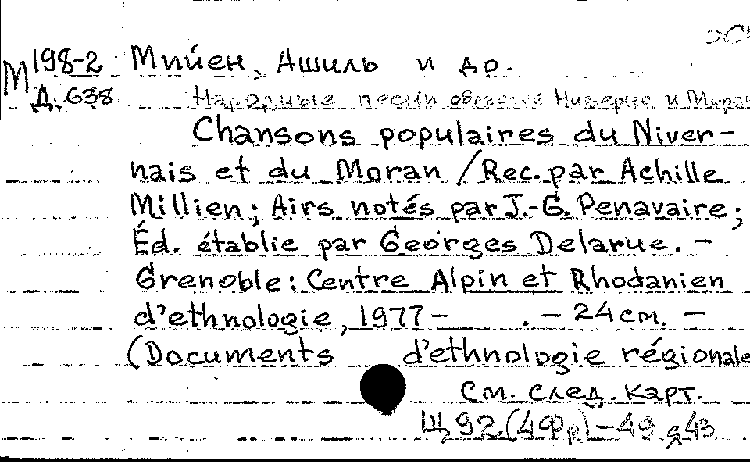 М 198-2 Мийен, Ашиль и др.
Д. 638 Народные песни области Ниверне и Моран
Chansons populaires du Niver-
nais et du Moran / Rec. par Achille
Millien; Airs notés par J.-G. Penavaire;
Éd. établie par Georges Delarue. –
Grenoble: Centre Alpin et Rhodanien
d'ethnologie, 1977 – . – 24 cm. –
(Documents d'ethnologie régionale
См. след. карт.
Щ92.(4Фр)-49 я43